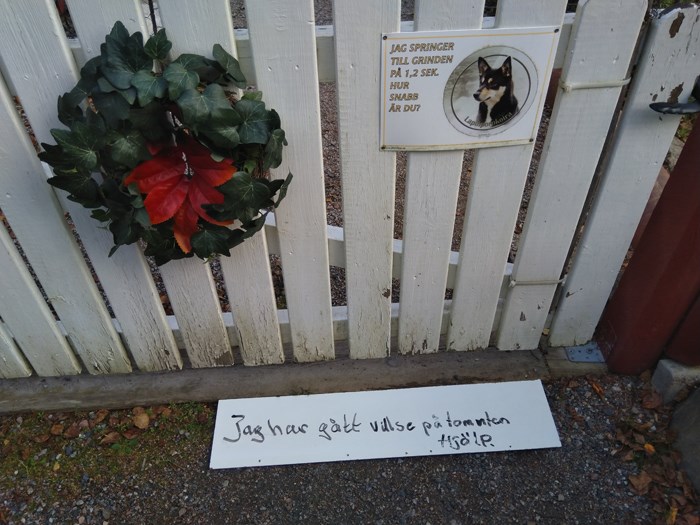 JAG SPRINGER
TILL GRINDEN
PÅ 1,2 SEK.
HUR
SNABB
ÄR DU?
Jag har gått vilse på tommten
HJÖLP